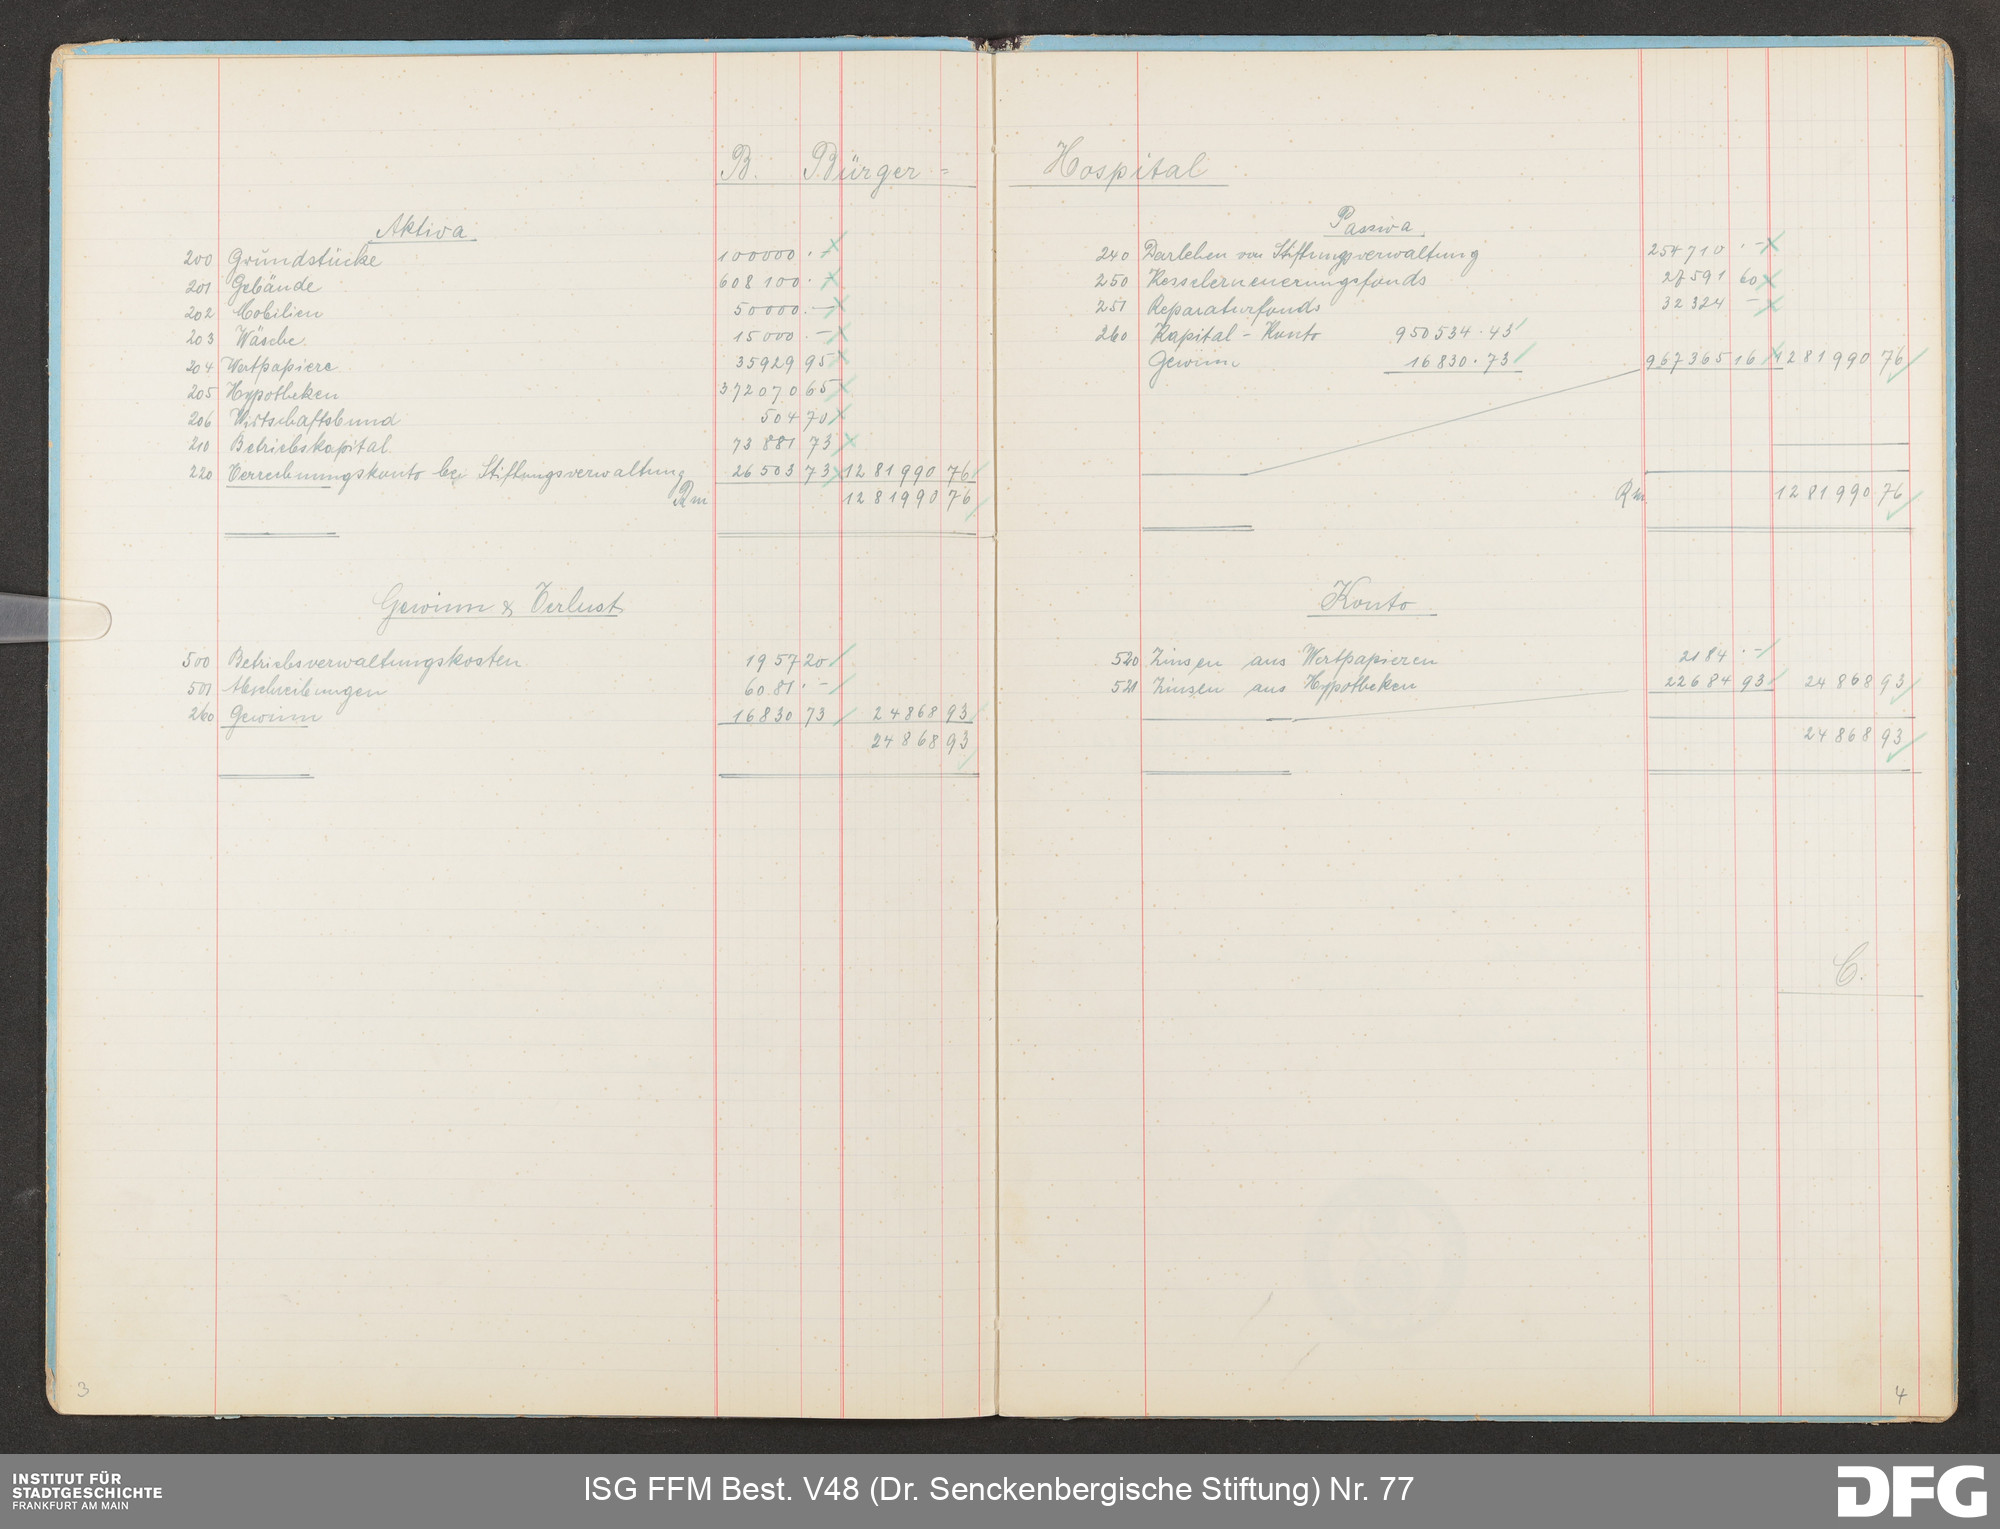 B. Bürger=
Aktiva
200 Grundstücke 100000 . –
201 Gebände 608100 . –
202 Mobilien 50000 . –
203 Wäsche. 15000 . –
204 Wertpapiere 35929 95
205 Hypotheken 372070 65
206 Wirtschaftsbund 504 70
210 Betriebskapital 73881 73
220 Verrechnungskonto bei Stiftungsverwaltung 26503 73 1281990 76
Rm 1281990 76
Gewinn & Verlust
500 Betriebsverwaltungskosten 1957 20
501 Abschreibungen 6081 . –
260 Gewinn 16830 73 24868 93
24868 93
3
Hospital
Passiva
240 Darlehen von Stiftungsverwaltung 254710 . –
250 Kesselerneuerungsfonds 27591 60
251 Reparaturfonds 32324 –
260 Kapital-Konto 950534.43
Gewinn 16830.73 967365 16 1281990 76
Rm. 1281990 76
Konto
520 Zinsen aus Wertpapieren 2184 . –
521 Zinsen aus Hypotheken 22684 93 24868 93
24868 93
C.
4
INSTITUT FÜR
STADTGESCHICHTE
FRANKFURT AM MAIN
ISG FFM Best. V48 (Dr. Senckenbergische Stiftung) Nr. 77
DFG